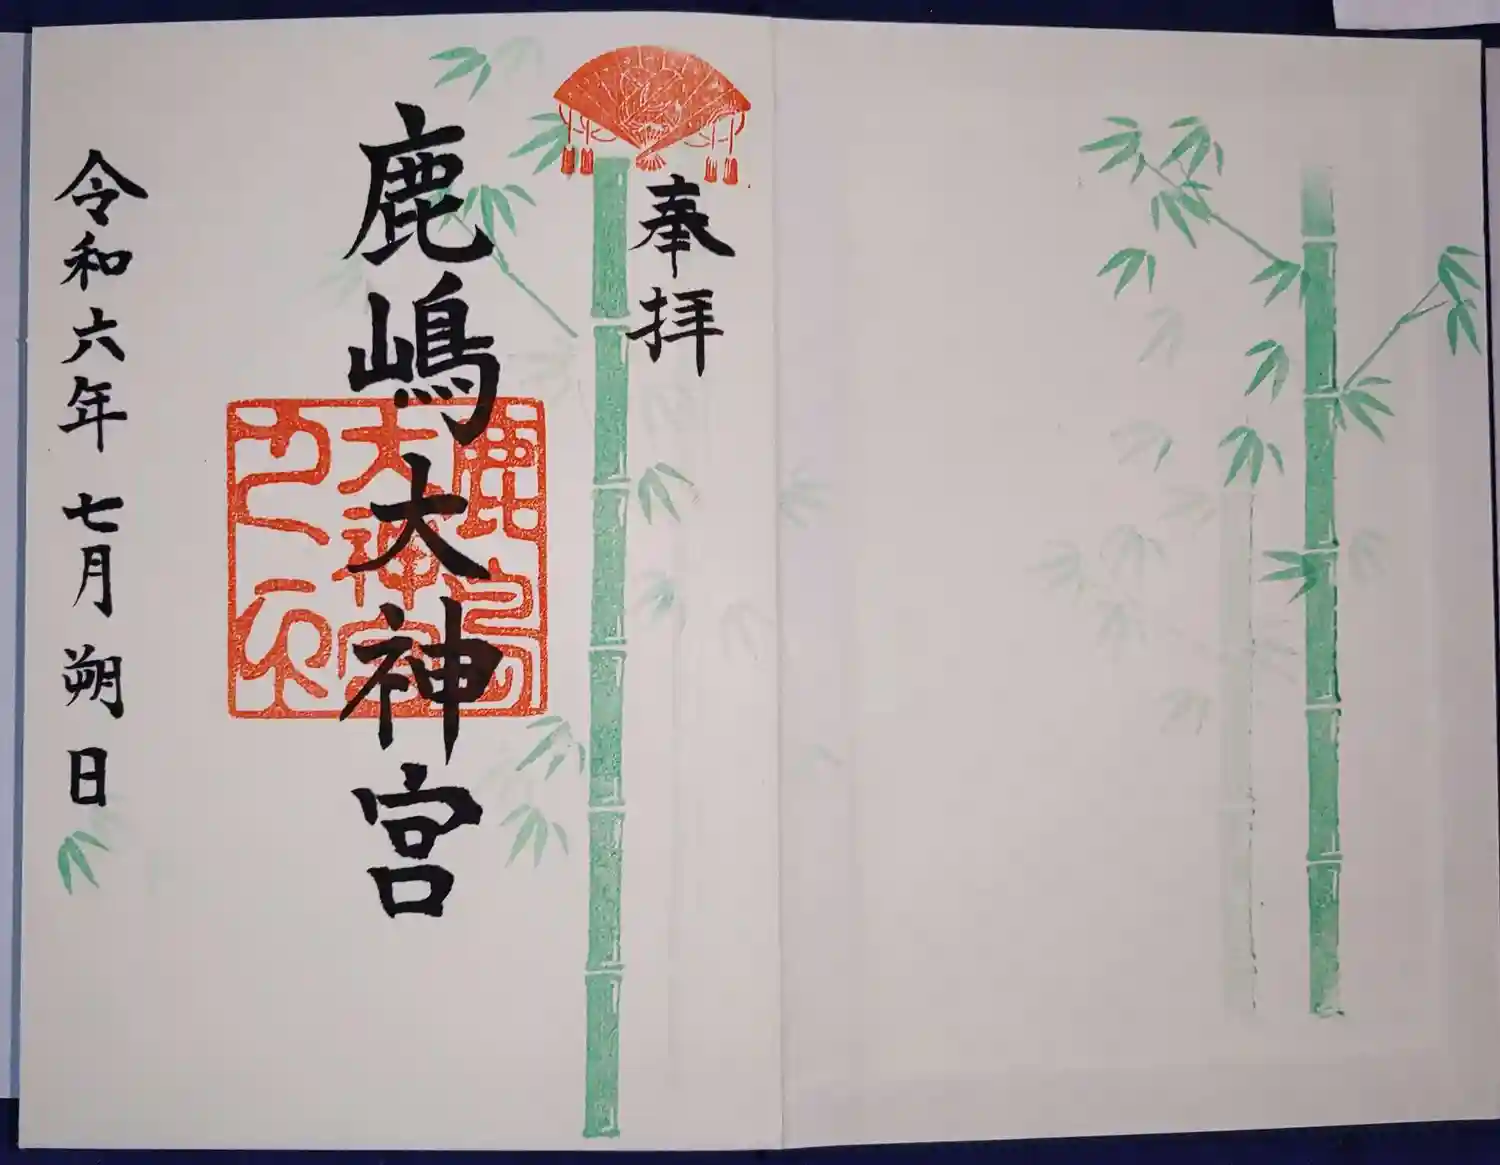 奉拝
鹿嶋大神宮
鹿嶋大神宮之印
令和六年七月朔日